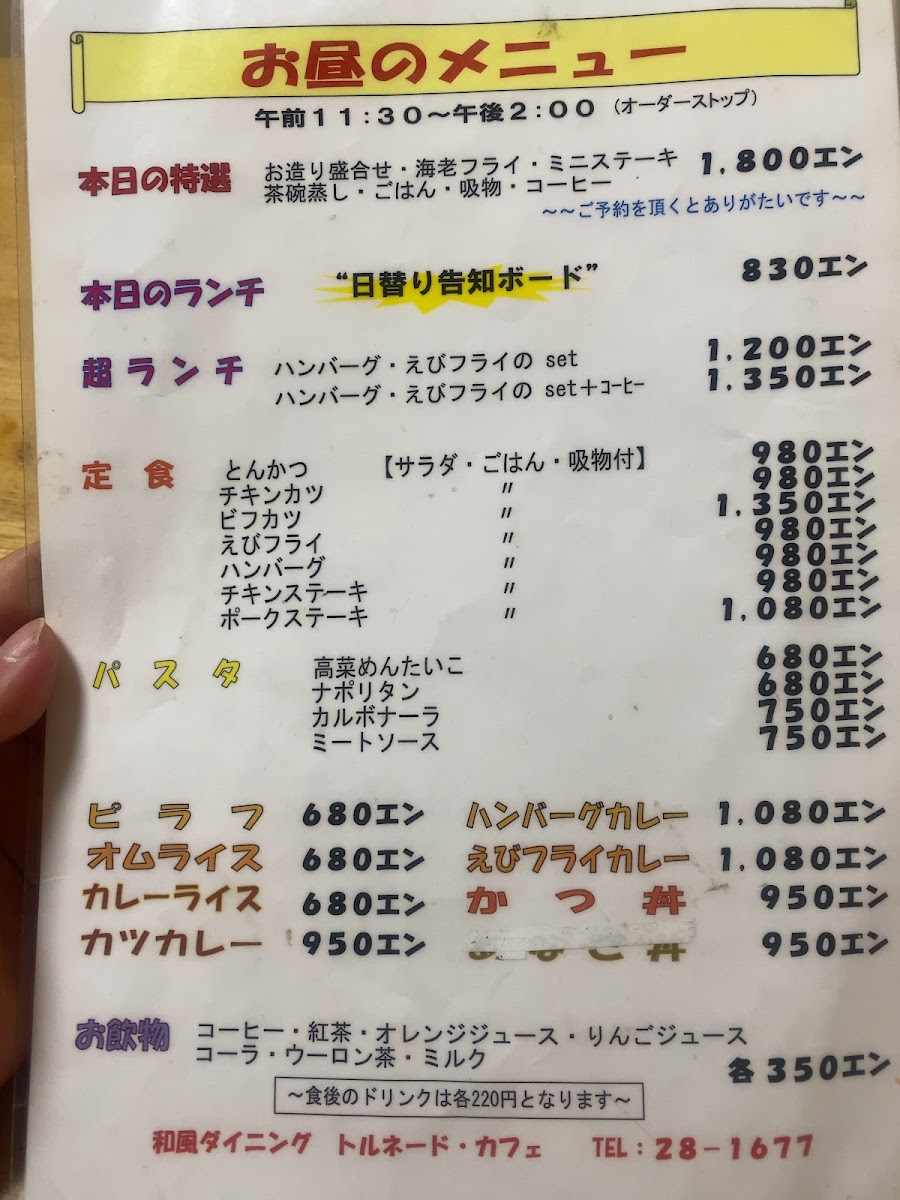 お昼のメニュー
午前11:30～午後2:00 (オーダーストップ)
本日の特選 お造り盛合せ・海老フライ・ミニステーキ 1,800エン
茶碗蒸し・ごはん・吸物・コーヒー
～～ご予約を頂くとありがたいです～～
本日のランチ “日替り告知ボード” 830エン
超ランチ ハンバーグ・えびフライの set 1,200エン
ハンバーグ・えびフライの set＋ｺｰﾋｰ 1,350エン
定食 とんかつ 【サラダ・ごはん・吸物付】 980エン
チキンカツ 〃 980エン
ビフカツ 〃 1,350エン
えびフライ 〃 980エン
ハンバーグ 〃 980エン
チキンステーキ 〃 980エン
ポークステーキ 〃 1,080エン
パスタ 高菜めんたいこ 680エン
ナポリタン 680エン
カルボナーラ 750エン
ミートソース 750エン
ピラフ 680エン ハンバーグカレー 1,080エン
オムライス 680エン えびフライカレー 1,080エン
カレーライス 680エン かつ丼 950エン
カツカレー 950エン 丼 950エン
お飲物 コーヒー・紅茶・オレンジジュース・りんごジュース
コーラ・ウーロン茶・ミルク
各350エン
～食後のドリンクは各220円となります～
和風ダイニング トルネード・カフェ TEL：28-1677